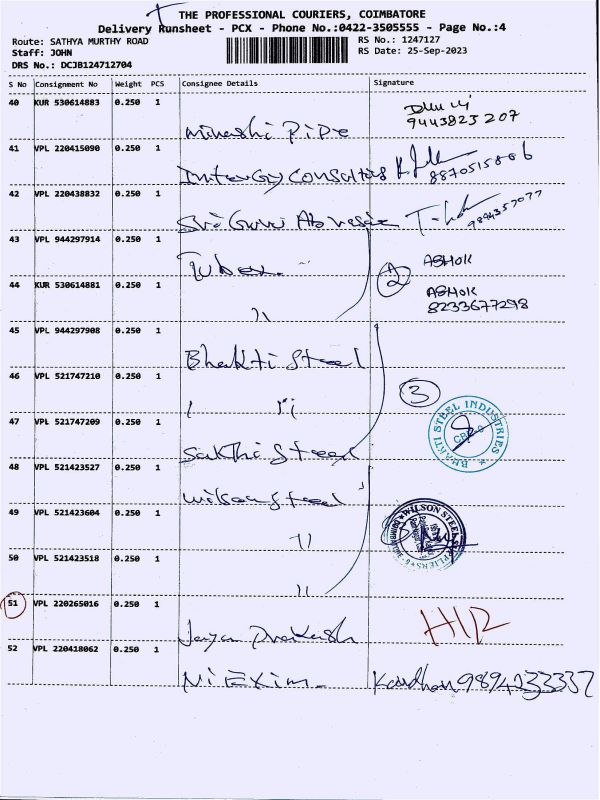 THE PROFESSIONAL COURIERS, COIMBATORE
Delivery Runsheet - PCX - Phone No.:0422-3505555 - Page No.:4
Route: SATHYA MURTHY ROAD RS No.: 1247127
Staff: JOHN RS Date: 25-Sep-2023
DRS No.: DCJB124712704
S No Consignment No Weight PCS Consignee Details Signature
40 KUR 530614883 0.250 1
9443823207
Pipe
41 VPL 220415090 0.250 1
8870515886
42 VPL 220438832 0.250 1
Sri Guru
43 VPL 944297914 0.250 1
ASHOK
2
44 KUR 530614881 0.250 1
ASHOK
8233677298
"
45 VPL 944297908 0.250 1
Bhakti Steel
46 VPL 521747210 0.250 1
3
47 VPL 521747209 0.250 1
BHAKTI STEEL INDUSTRIES
CBE-9
Sakthi Steel
48 VPL 521423527 0.250 1
Wilson Steel
49 VPL 521423604 0.250 1
WILSON STEEL SUPPLIERS
"
50 VPL 521423518 0.250 1
"
51 VPL 220265016 0.250 1
Jaya Prakash
52 VPL 220418062 0.250 1
Mi Exim